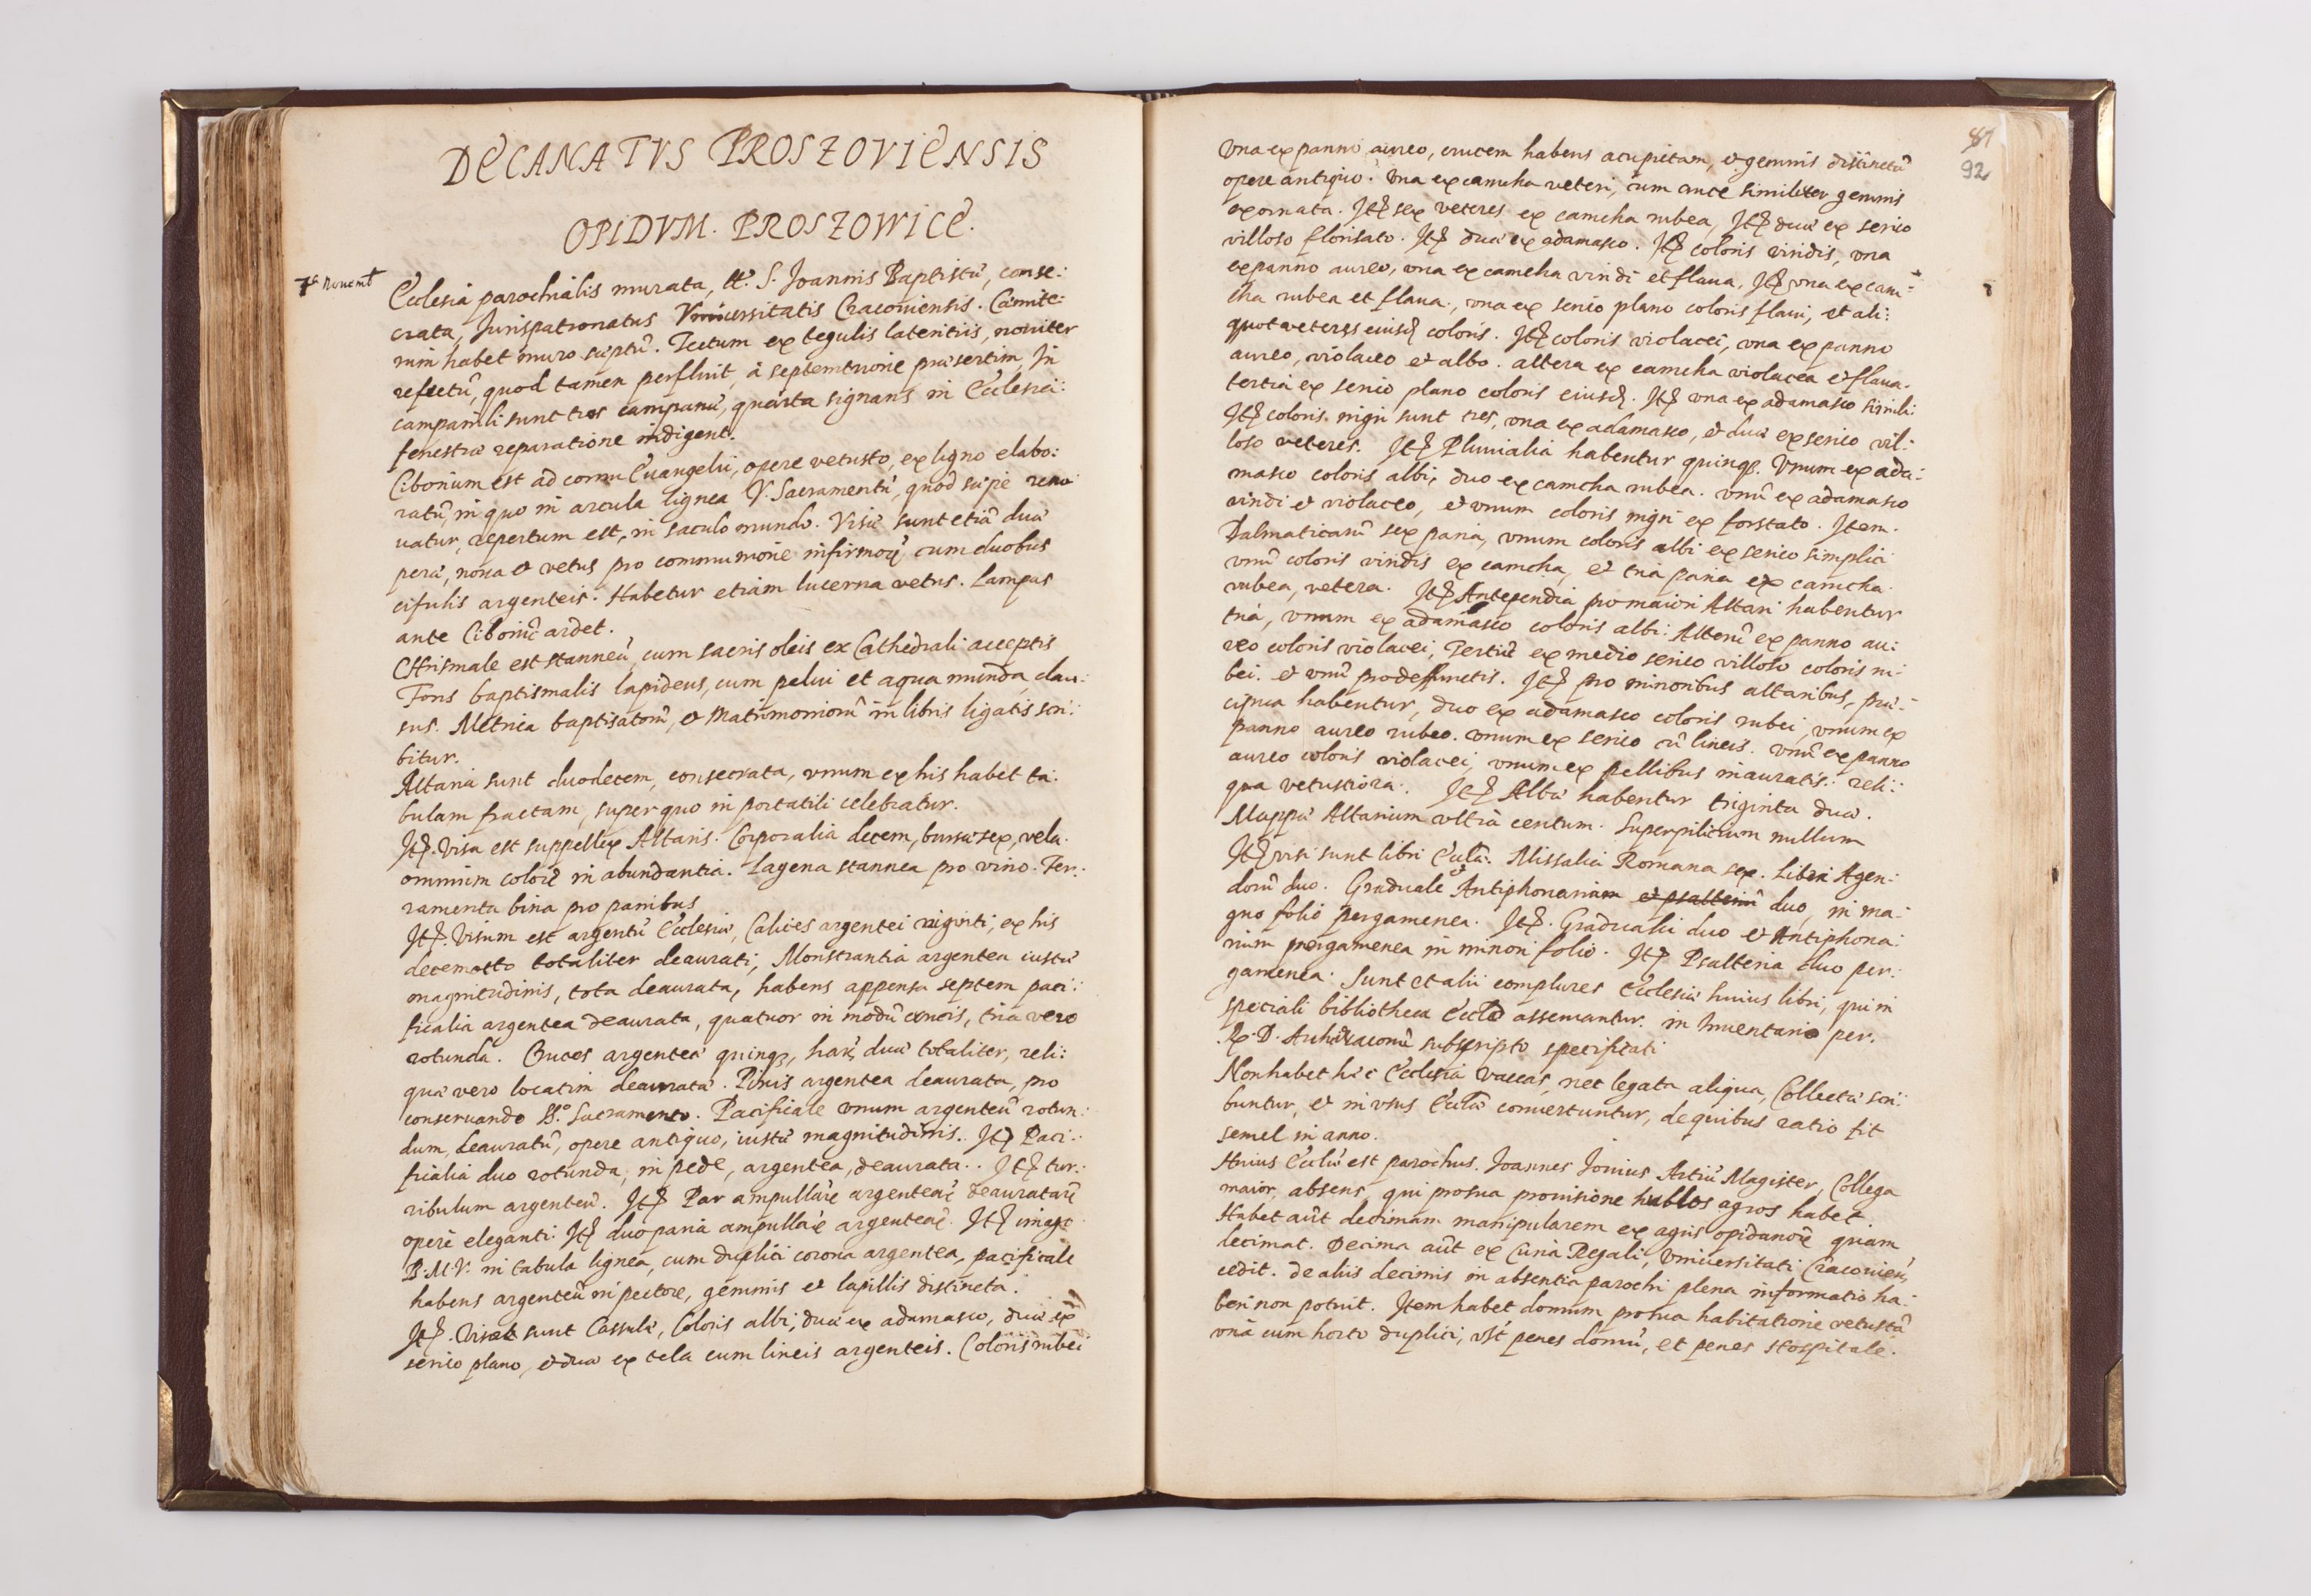 DECANATVS PROSZOVIENSIS
OPIDVM. PROSZOWICE.
7ª Novemb
Ecclesia parochialis murata, tt. S. Joannis Baptistæ, conse:
crata, Jurispatronatus Vniuersitatis Cracouiensis. Cœmite:
rium habet muro sæptũ. Tectum ex tegulis lateritiis, nouiter
refectũ, quod tamen perfluit, à septemtrione præsertim, In
campanili sunt tres campanæ, quarta signans in Ecclesia:
fenestræ reparatione indigent.
Ciborium est ad cornu Euangelii, opere vetusto, ex ligno elabo:
ratũ, in quo in arcula lignea V. Sacramentũ, quod sæpe reno:
uatur, repertum est, in sacculo mundo. Visæ sunt etiã duæ
peræ, noua et vetus pro communione infirmoꝝ cum duobus
cifulis argenteis. Habetur etiam lucerna vetus. Lampas
ante Ciboriũ ardet.
Chrismale est stanneũ, cum sacris oleis ex Cathedrali acceptis
Fons baptismalis lapideus, cum pelui et aqua munda, clau:
sus. Metrica baptisatorũ, et Matrimoniorũ in libris ligatis scri:
bitur.
Altaria sunt duodecem, consecrata, vnum ex his habet ta:
bulam fractam, super quo in portatili celebratur.
Itẽ. Visa est suppellex Altaris. Corporalia decem, bursæ sex, vela
omnium colorũ in abundantia. Lagena stannea pro vino. Fer:
ramenta bina pro panibus
Itẽ. Visum est argentũ Ecclesiæ, Calices argentei viginti, ex his
decemotto totaliter deaurati, Monstrantia argentea iustæ
magnitudinis, tota deaurata, habens appensa septem paci:
ficalia argentea deaurata, quatuor in modũ crucis, tria vero
rotunda. Cruces argenteæ quinqꝫ, harũ duæ totaliter, reli:
quæ vero locatim deauratæ. Pixis argentea deaurata, pro
conseruando SS.º Sacramento. Pacificale vnum argenteũ rotun:
dum, deauratũ, opere antiquo, iustæ magnitudinis. Itẽ Paci:
ficalia duo rotunda, in pede, argentea, deaurata. Itẽ tur:
ribulum argenteũ. Itẽ Par ampullarũ argentearũ deauratarũ
opere eleganti. Itẽ duo paria ampullarũ argentearũ. Itẽ imago
B. M. V. in tabula lignea, cum duplici corona argentea, pacificale
habens argenteũ in pectore, gemmis et lapillis distincta.
Itẽ. Visæ sunt Cassulæ, Coloris albi, duæ ex adamasco, duæ ex
serico plano, et duæ ex tela cum lineis argenteis. Coloris rubei
87
92
vna ex panno aureo, crucem habens acupictam, et gemmis distinctã
opere antiquo. Vna ex camcha veteri, cum cruce similiter gemmis
exornata. Itẽ sex veteres ex camcha rubea, Itẽ duæ ex serico
villoso florisato. Itẽ duæ ex adamasco. Itẽ coloris viridis, vna
ex panno aureo, vna ex camcha viridi et flaua, Itẽ vna ex cam:
cha rubea et flaua, vna ex serico plano coloris flaui, et ali:
quot veteres eiusd coloris. Itẽ coloris violacei, vna ex panno
aureo, violaceo et albo. altera ex camcha violacea et flaua.
tertia ex serico plano coloris eiusd. Itẽ vna ex adamasco simili.
Itẽ coloris nigri sunt tres, vna ex adamasco, et duæ ex serico vil:
loso veteres. Itẽ Pluuialia habentur quinqꝫ. Vnum ex ada:
masco coloris albi, duo ex camcha rubea. vnũ ex adamasco
viridi et violaceo, et vnum coloris nigri ex forstato. Item.
Dalmaticarũ sex paria, vnum coloris albi ex serico simplici
vnũ coloris viridis ex camcha, et tria paria ex camcha
rubea, vetera. Itẽ Antependia pro maiori Altari habentur
tria, vnum ex adamasco coloris albi: Alterũ ex panno au:
reo coloris violacei, Tertiũ ex medio serico villoso coloris ru:
bei. et vnũ pro defunctis. Itẽ pro minoribus altaribus, præ:
cipua habentur, duo ex adamasco coloris rubei, vnum ex
panno aureo rubeo. vnum ex serico cũ lineis. vnũ ex panno
aureo coloris violacei, vnum ex pellibus inauratis: reli:
qua vetustiora. Itẽ Albæ habentur triginta duæ.
Mappæ Altarium vltra centum. Superpilicium nullum
Itẽ visi sunt libri Eccliæ. Missalia Romana sex. Libri Agen:
dorũ duo. Graduale et Antiphonarium et psalteriũ duo, in ma:
gno folio pergamenea. Itẽ. Gradualia duo et Antiphona:
rium pergamenea in minori folio. Itẽ Psalteria duo per:
gamenea. Sunt et alii complures Ecclesiæ huius libri, qui in
speciali bibliotheca Eccliæ asseruantur. in Inuentario per.
R. D. Archidiaconũ subscripto specificati
Non habet hæc Ecclesia vaccas, nec legata aliqua, Collectæ scri:
buntur, et in vsus Eccliæ conuertuntur, de quibus ratio fit
semel in anno.
Huius Eccliæ est parochus. Joannes Jonius Artiũ Magister, Collega
maior, absens, qui pro sua prouisione nullos agros habet.
Habet aũt decimam manipularem ex agris opidanorũ quam
decimat. Decima aũt ex Curia Regali, Vniuersitati Cracouien,
cedit. De aliis decimis in absentia parochi plena informatio ha:
beri non potuit. Item habet domum pro sua habitatione vetustã
vna cum horto duplici, vst penes domũ, et penes Hospitale.